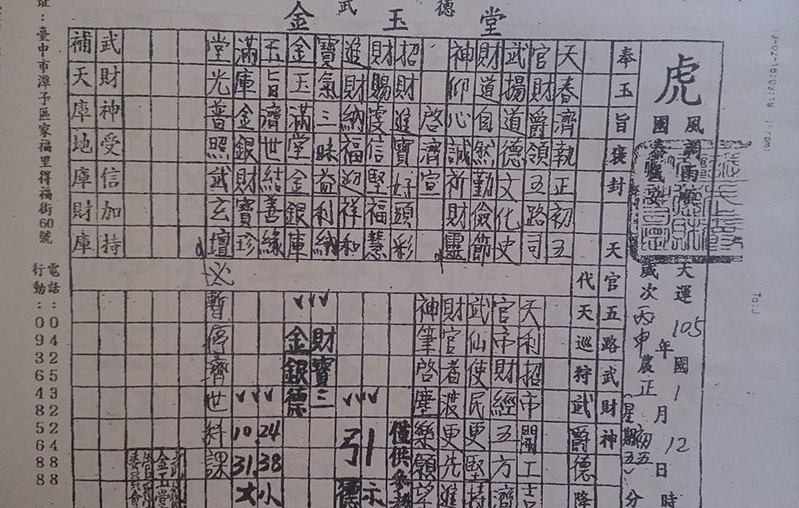 武德
金玉堂
虎
風調雨順
國泰民安
天運105年國1月12日時
歲次丙申農正初五(星期五)分
奉玉旨褒封 天官五路武財神
代天巡狩武爵德降
天春濟執正初五
官財爵領五路司
武揚道德文化史
財道自然勤儉節
神仰心誠祈財靈
啓濟宣
招財進寶好頭彩
財賜婆信堅福慧
進財納福迎祥和
寶氣三昧益利納
金玉滿堂金銀庫
玉旨濟世結善緣
滿庫金銀財寶珍
堂光普照武玄壇
武財神受信加持
補天庫地庫財庫
天利招市開工吉
官帝財經五方濟
武仙使民更堅持
財官者渡更先進
神筆啓塵樂願望
僅供參考
示
引德
財寶三
金銀德
24 38 小
10 31 大
必暫停濟世科課
金玉堂
委員會
址:臺中市潭子區家福里得福街60號
電話:0425322488
行動:0936485688